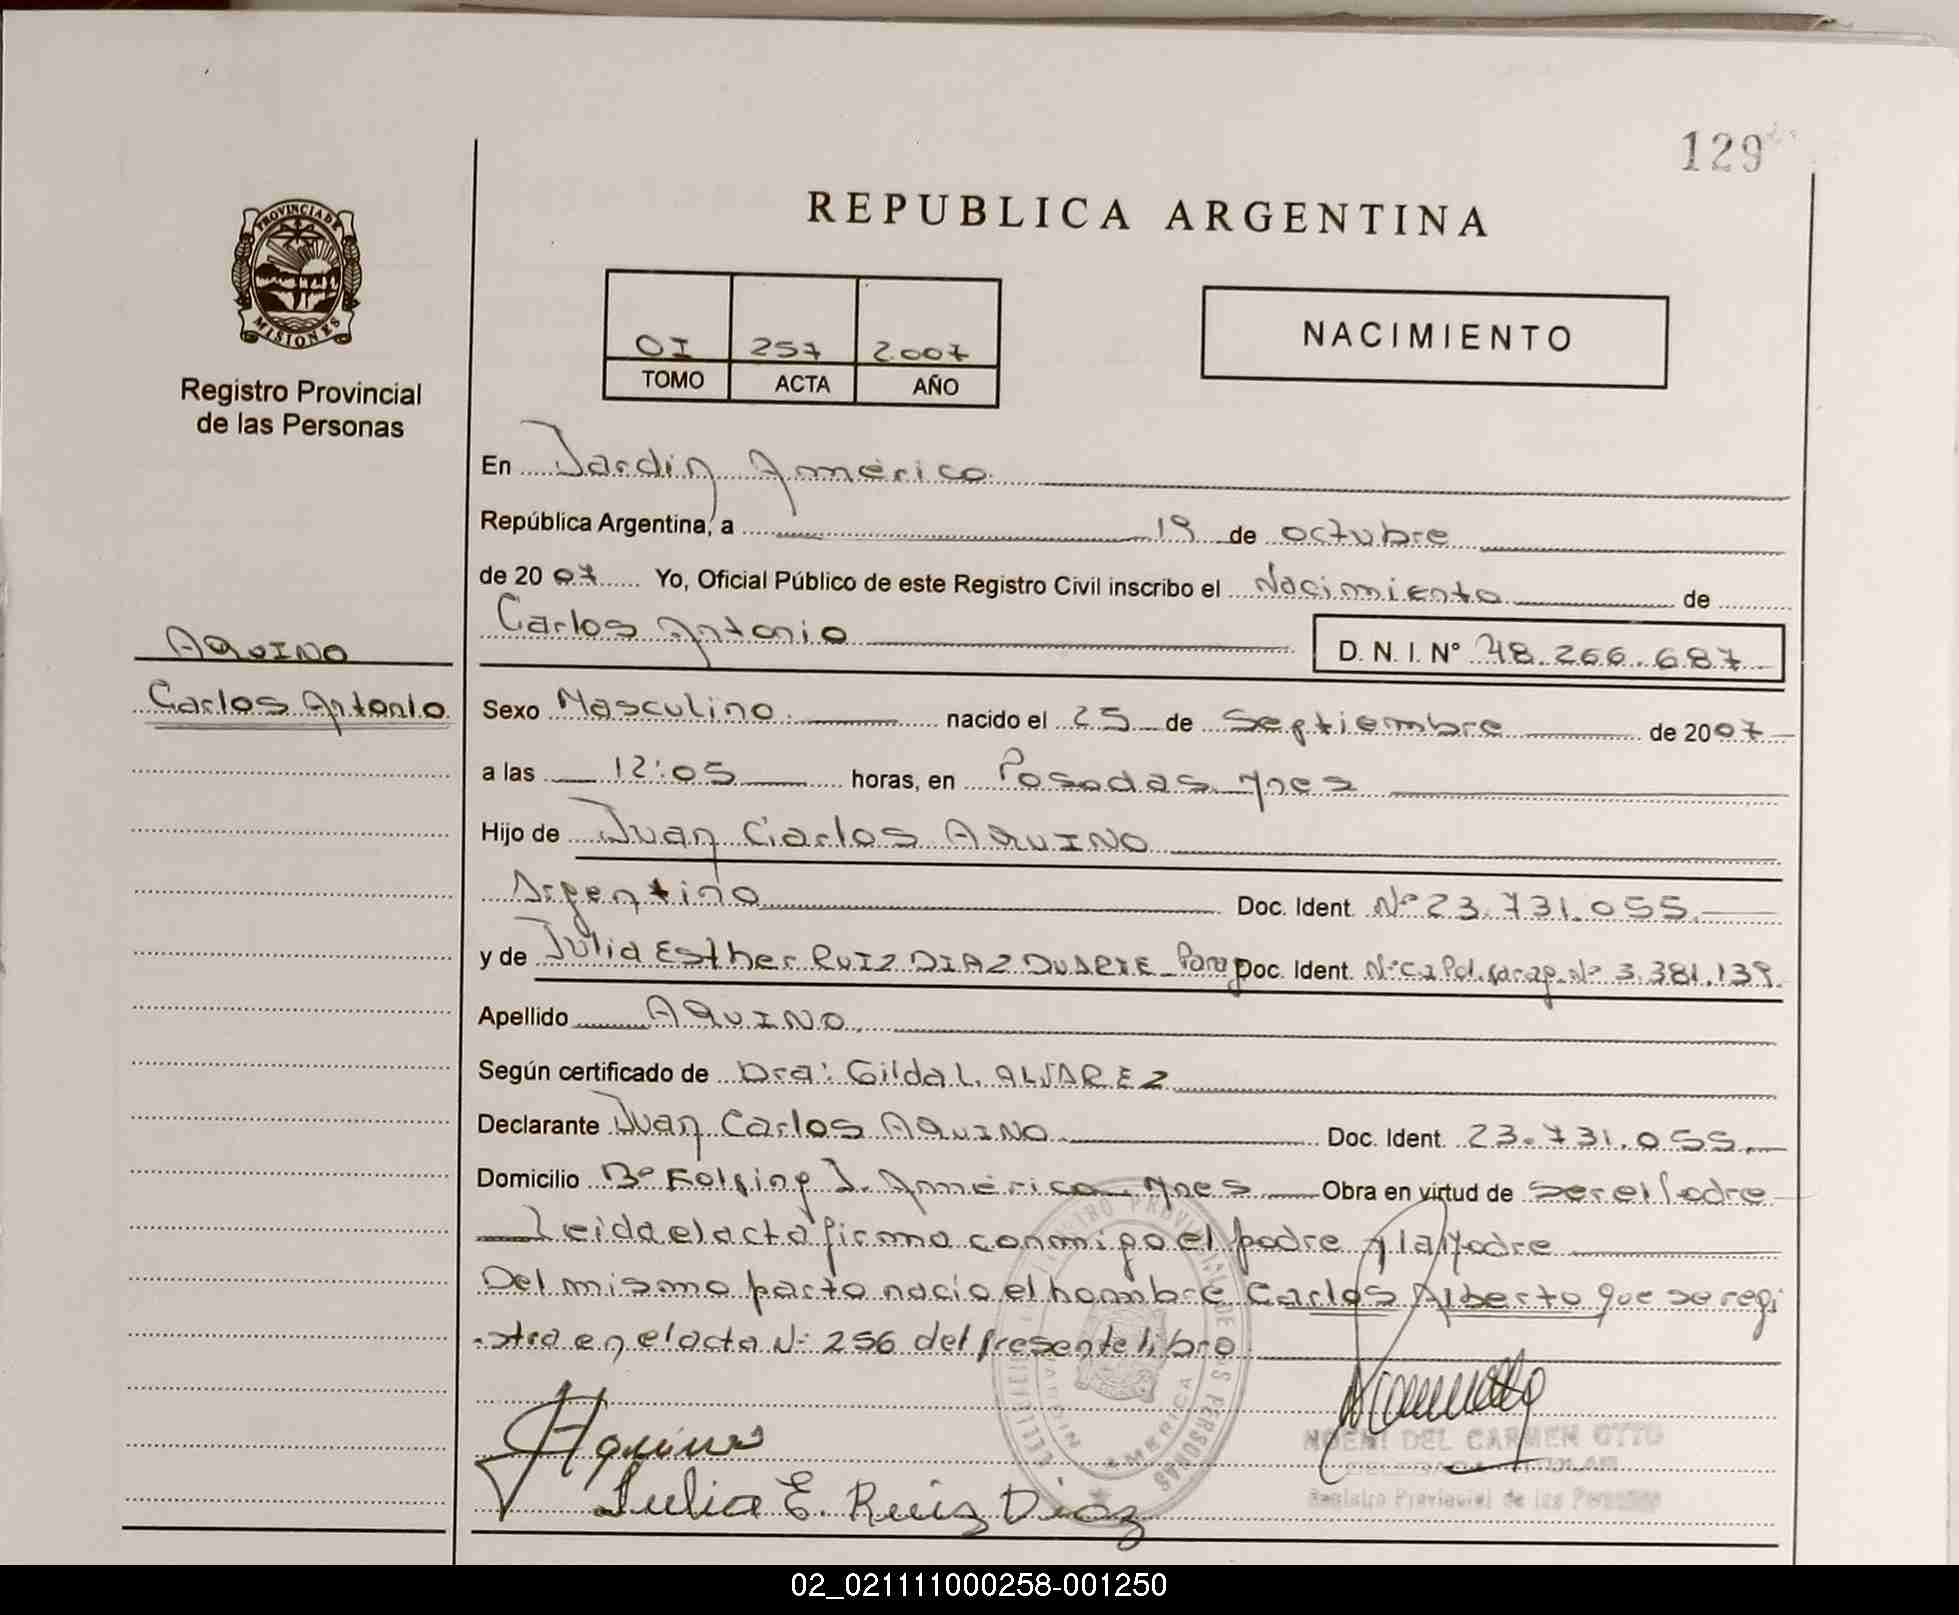 129
PROVINCIA DE
MISIONES
Registro Provincial
de las Personas
REPUBLICA ARGENTINA
OI 257 2007
TOMO ACTA AÑO
NACIMIENTO
En Jardín América
República Argentina, a 19 de octubre
de 20 07 Yo, Oficial Público de este Registro Civil inscribo el Nacimiento de
Carlos Antonio D. N. I. N° 48.266.687
AQUINO
Carlos Antonio
Sexo Masculino nacido el 25 de Septiembre de 20 07
a las 12:05 horas, en Posadas Mnes
Hijo de Juan Carlos AQUINO
Argentino Doc. Ident. Nº 23.731.055.
y de Julia Esther RUIZ DIAZ DUARTE - Parag Doc. Ident. Nº C.I Pol. Parag. Nº 3.381.139
Apellido AQUINO
Según certificado de Dra: Gilda L. ALVAREZ
Declarante Juan Carlos AQUINO Doc. Ident. 23.731.055.
Domicilio Bº Kolping J. América - Mnes Obra en virtud de ser el Padre
Leida el acta firma conmigo el padre y la Madre
Del mismo parto nacio el hombre Carlos Alberto que se regi
stra en el acta Nº 256 del presente libro
Aquino
Julia E. Ruiz Diaz
REGISTRO PROVINCIAL DE LAS PERSONAS
JARDIN AMERICA
NOEMI DEL CARMEN OTTO
DELEGADA TITULAR
Registro Provincial de las Personas
02_021111000258-001250